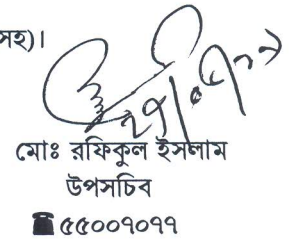 সহ)।
মোঃ রফিকুল ইসলাম
উপসচিব
☎ ৫৫০০৭০৭৭